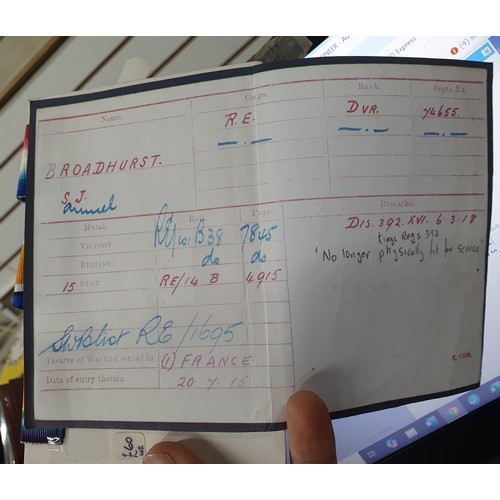 Name. Corps. Rank. Regtl. No.
BROADHURST. R.E. DVR. 74655
S. J.
Samuel
Medal. Roll. Page. Remarks.
Victory RE/101 B38 7845 DIS. 392. XVI. 6.3.18
British do do Kings Regs 392
15 Star RE/14 B 4915 'No longer physically fit for service'
RE/1695
Theatre of War first served in (1) FRANCE.
Date of entry therein 20 7 15